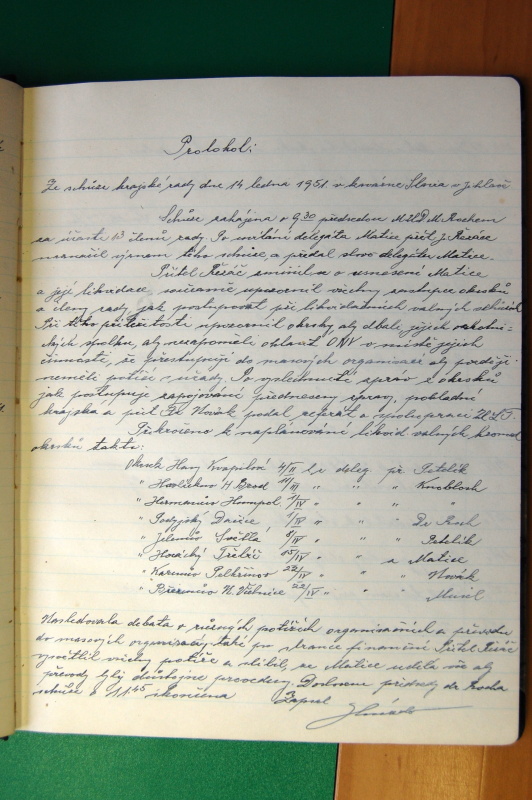 Protokol:
Ze schůze krajské rady dne 14 ledna 1951 v kavárně Slavia v Jihlavě
Schůze zahájena v 9.30 předsedou M.U.D. M. Rochem
za účasti 13 členů rady. Po uvítání delegáta Matice přít. J. Řeháče
naznačil význam této schůze a předal slovo delegátu Matice.
Přítel Řeháč zmínil se o usnesení Matice
a její likvidace, současně upozornil všechny zástupce okrsků
a členy rady jak postupovat při likvidačních valných
Při této příležitosti upozornil okrsky aby dbali jejich
spolků, aby nezapoměli ohlásit ONV v místě jejich
činnosti, že přestupují do masových organisací aby později
neměli potíže s úřady. Po vyslechnutí zpráv z okrsků
jak postupuje zapojování předneseny zprávy, pokladní
krajska a přít Dr. Novák podal referát o spolupráci
Přikročeno k naplánování likvid. valných hromad
okrsků takto:
Okrsek Hany Kvapilové 4/II deleg. př. Petelík
" Havlíčkův H. Brod " " " Knobloch
" Heřmanův Humpol. /IV " " "
" Podyjský Dačice 1/IV " " " Dr. Roch
" Jelenův Světlá 8/IV " " " Petelík
" Horácký Třebíč 15/IV " " a Matice
" Pelhřimov 22/IV " " " Novák
" Březinův N. Větrnice 22/IV " "
Následovala debata o různých potížích organisačních a převodu
do masových organisací, také po stránce finanční. Přítel Řeháč
vysvětlil všechny potíže a slíbil, že Matice udělá vše aby
převody byly důstojně provedeny. Doslovem předsedy dr. Rocha
schůze v 11.45 skončena Zapsal